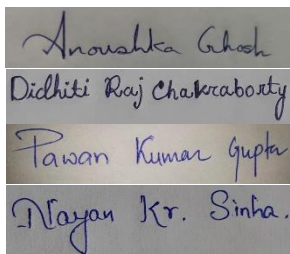 Anoushka Ghosh
Didhiti Raj Chakraborty
Pawan Kumar Gupta
Nayan Kr. Sinha.